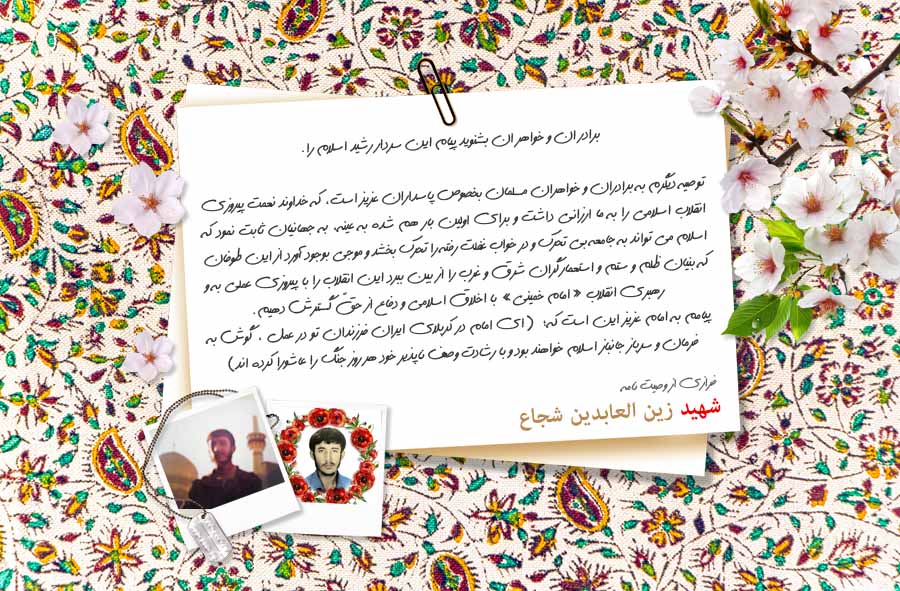 برادران و خواهران بشنوید پیام این سردار رشید اسلام را.
توصیه دیگرم به برادران و خواهران مسلمان بخصوص پاسداران عزیز است، که خداوند نعمت پیروزی
انقلاب اسلامی را به ما ارزانی داشت و برای اولین بار هم شده به عینه، به جهانیان ثابت نمود که
اسلام می تواند به جامعه بی تحرک و در خواب غفلت رفته را تحرک بخشد و موجی بوجود آورد از این طوفان
که بنیان ظلم و ستم و استعمارگران شرق و غرب را از بین ببرد این انقلاب را با پیروزی عملی به و
رهبری انقلاب «امام خمینی» با اخلاق اسلامی و دفاع از حق گسترش دهیم.
پیامم به امام عزیز این است که: (ای امام در کربلای ایران فرزندان تو در عمل، گوش به
فرمان و سرباز جانباز اسلام خواهند بود و با رشادت وصف ناپذیر خود هر روز جنگ را عاشورا کرده اند)
فرازی از وصیت نامه
شهید زین العابدین شجاع